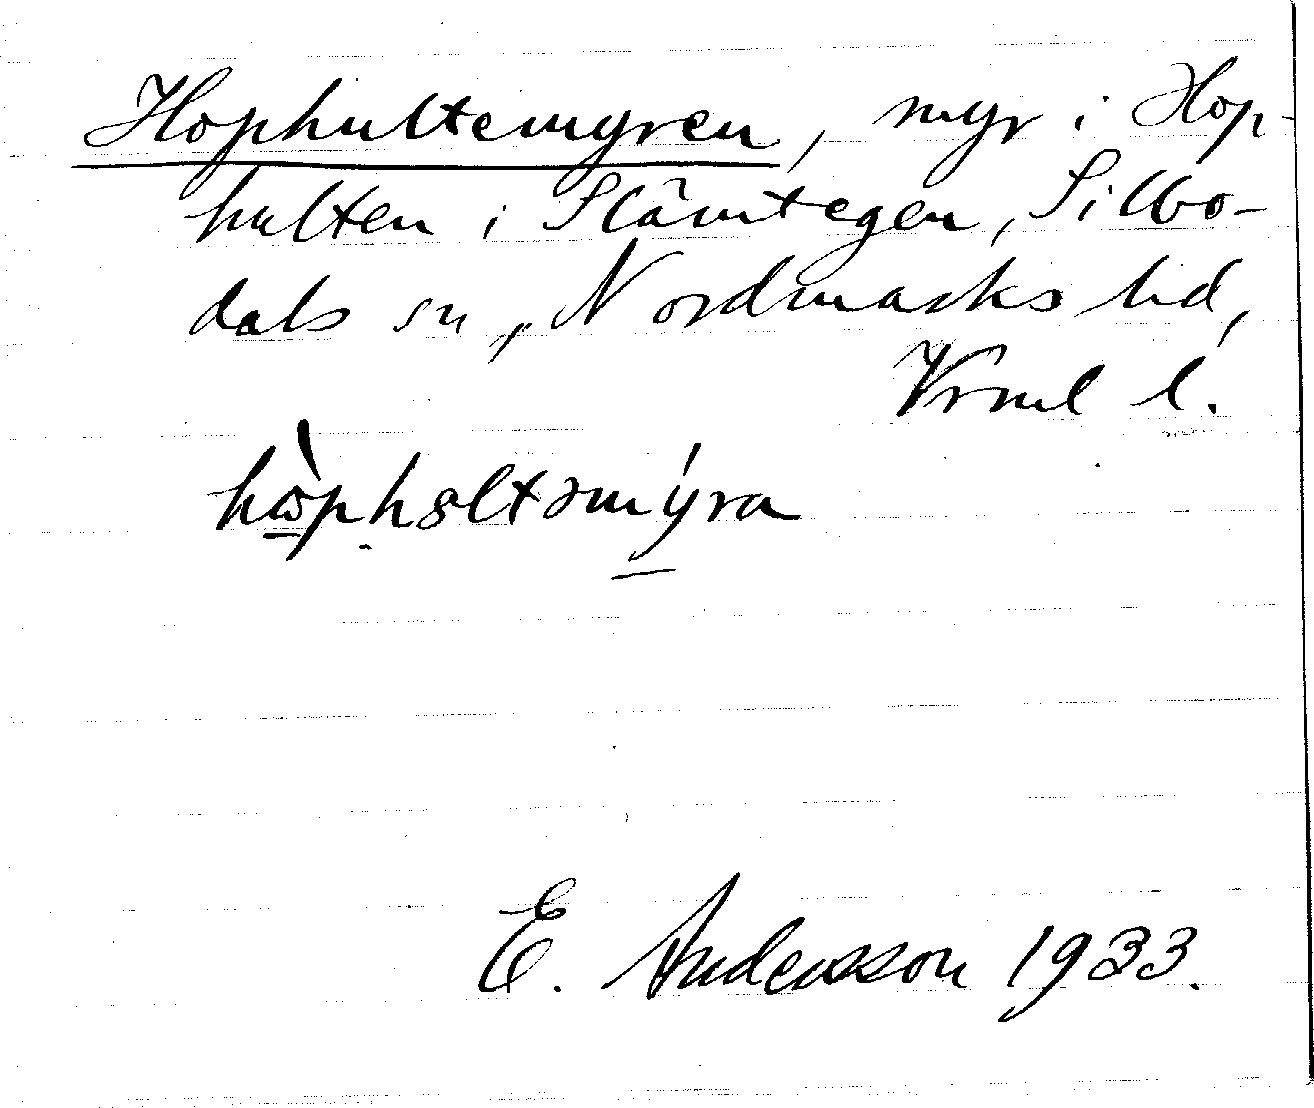 Hophultemyren, myr i Hop-
hulten i Slämtegen, Silbo-
dals sn, Nordmarks hd,
Vrml l.
hòphɞltəmýra
E. Andersson 1933.